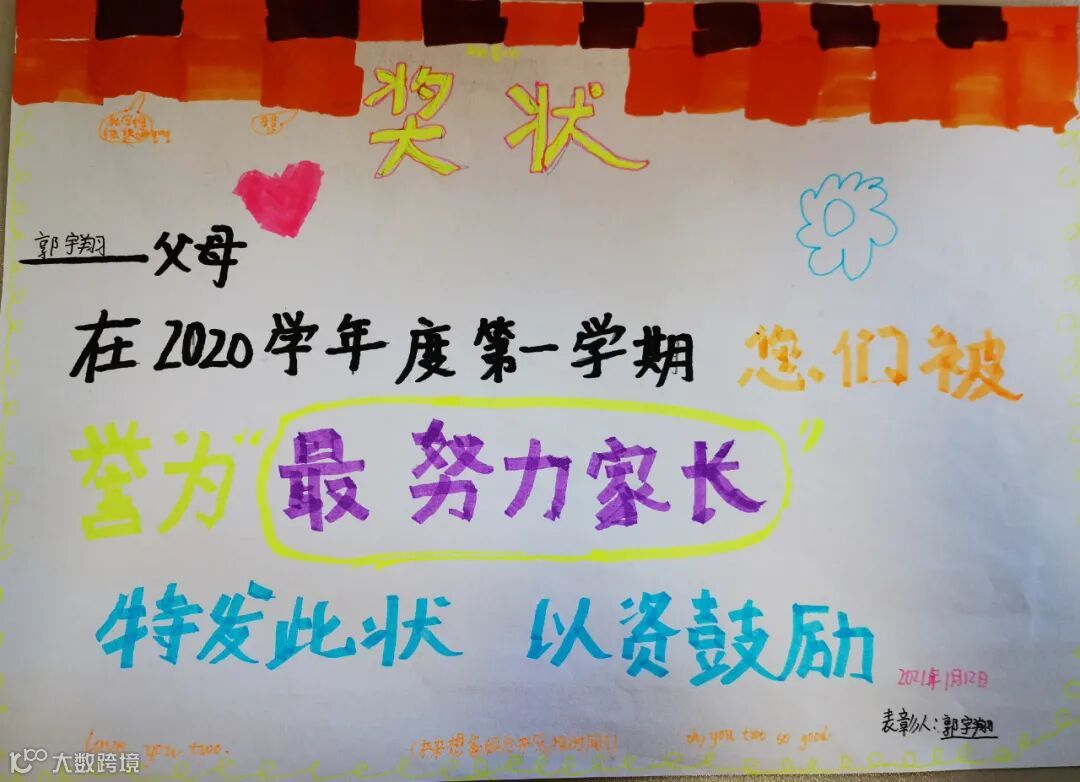 奖状
郭宇翔父母
在2020学年度第一学期 您们被
誉为“最努力家长”
特发此状 以资鼓励
2021年1月12日
表彰人:郭宇翔
Love you two.
oh you two so good
大数跨境